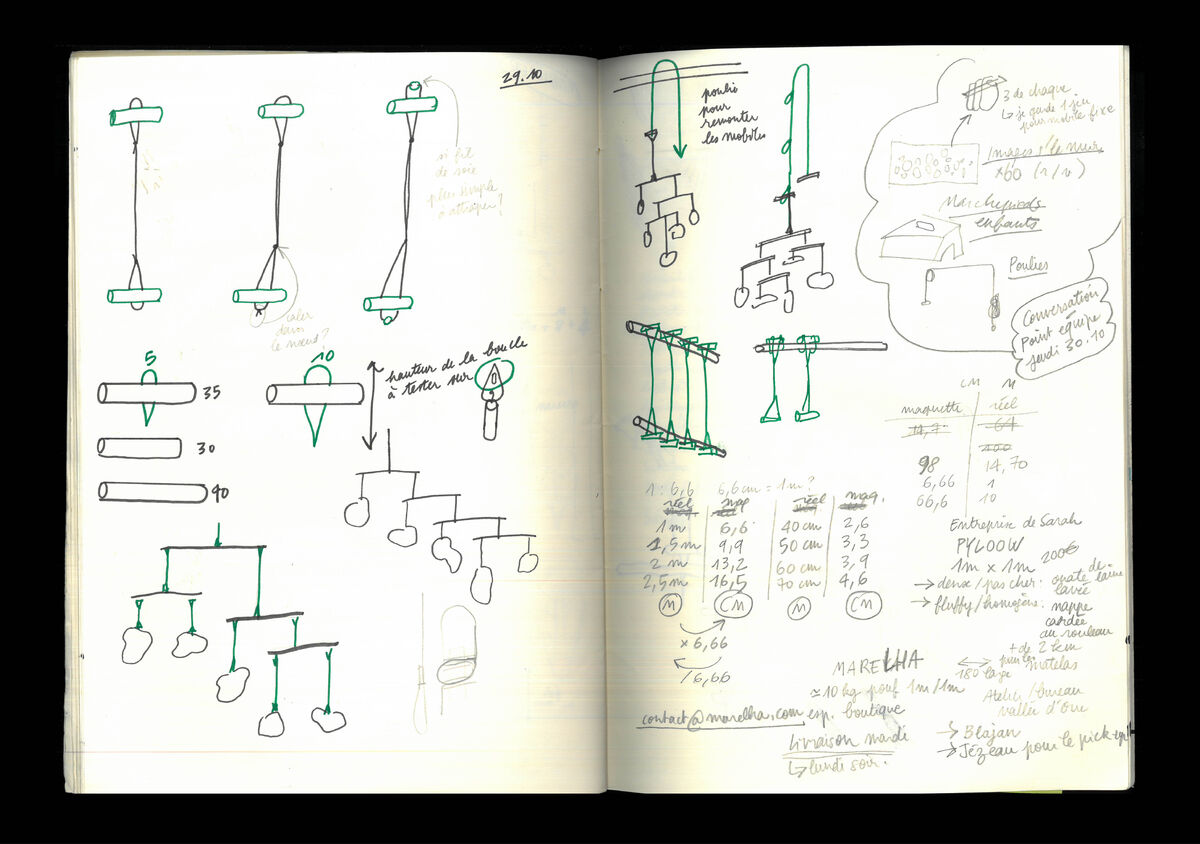 29.10
si fil
de soie
plus simple
à attraper?
caler
dans
le nœud?
5
35
30
40
10
hauteur de la boucle
à tester sur
poulie
pour
remonter
les mobiles
3 de chaque
↳ je garde 1 jeu
pour mobile fixe
Images s/le mur
×60 (r/v)
Marchepieds
enfants
Poulies
Conversation
Point équipe
jeudi 30.10
CM M
maquette réel
14,7 64
400
98 14,70
6,66 1
66,6 10
1 : 6,6 6,6 cm = 1m?
réel maq réel maq.
1 m 6,6 40 cm 2,6
1,5 m 9,9 50 cm 3,3
2 m 13,2 60 cm 3,9
2,5 m 16,5 70 cm 4,6
M CM M CM
× 6,66
/ 6,66
Entreprise de Sarah
PYLOOW
1m x 1m 200€
→ deux/pas cher: ouate de laine
lavée
→ fluffy/homogène: nappe
cardée
au rouleau
+ de 2 km
180 large
pour les matelas
MARELHA
≃ 10 kg pouf 1m/1m
contact@marelha.com esp. boutique
Livraison mardi
↳ lundi soir.
Atelier/bureau
vallée d'Oue
→ Blajan
→ Jézeau pour le pick-up